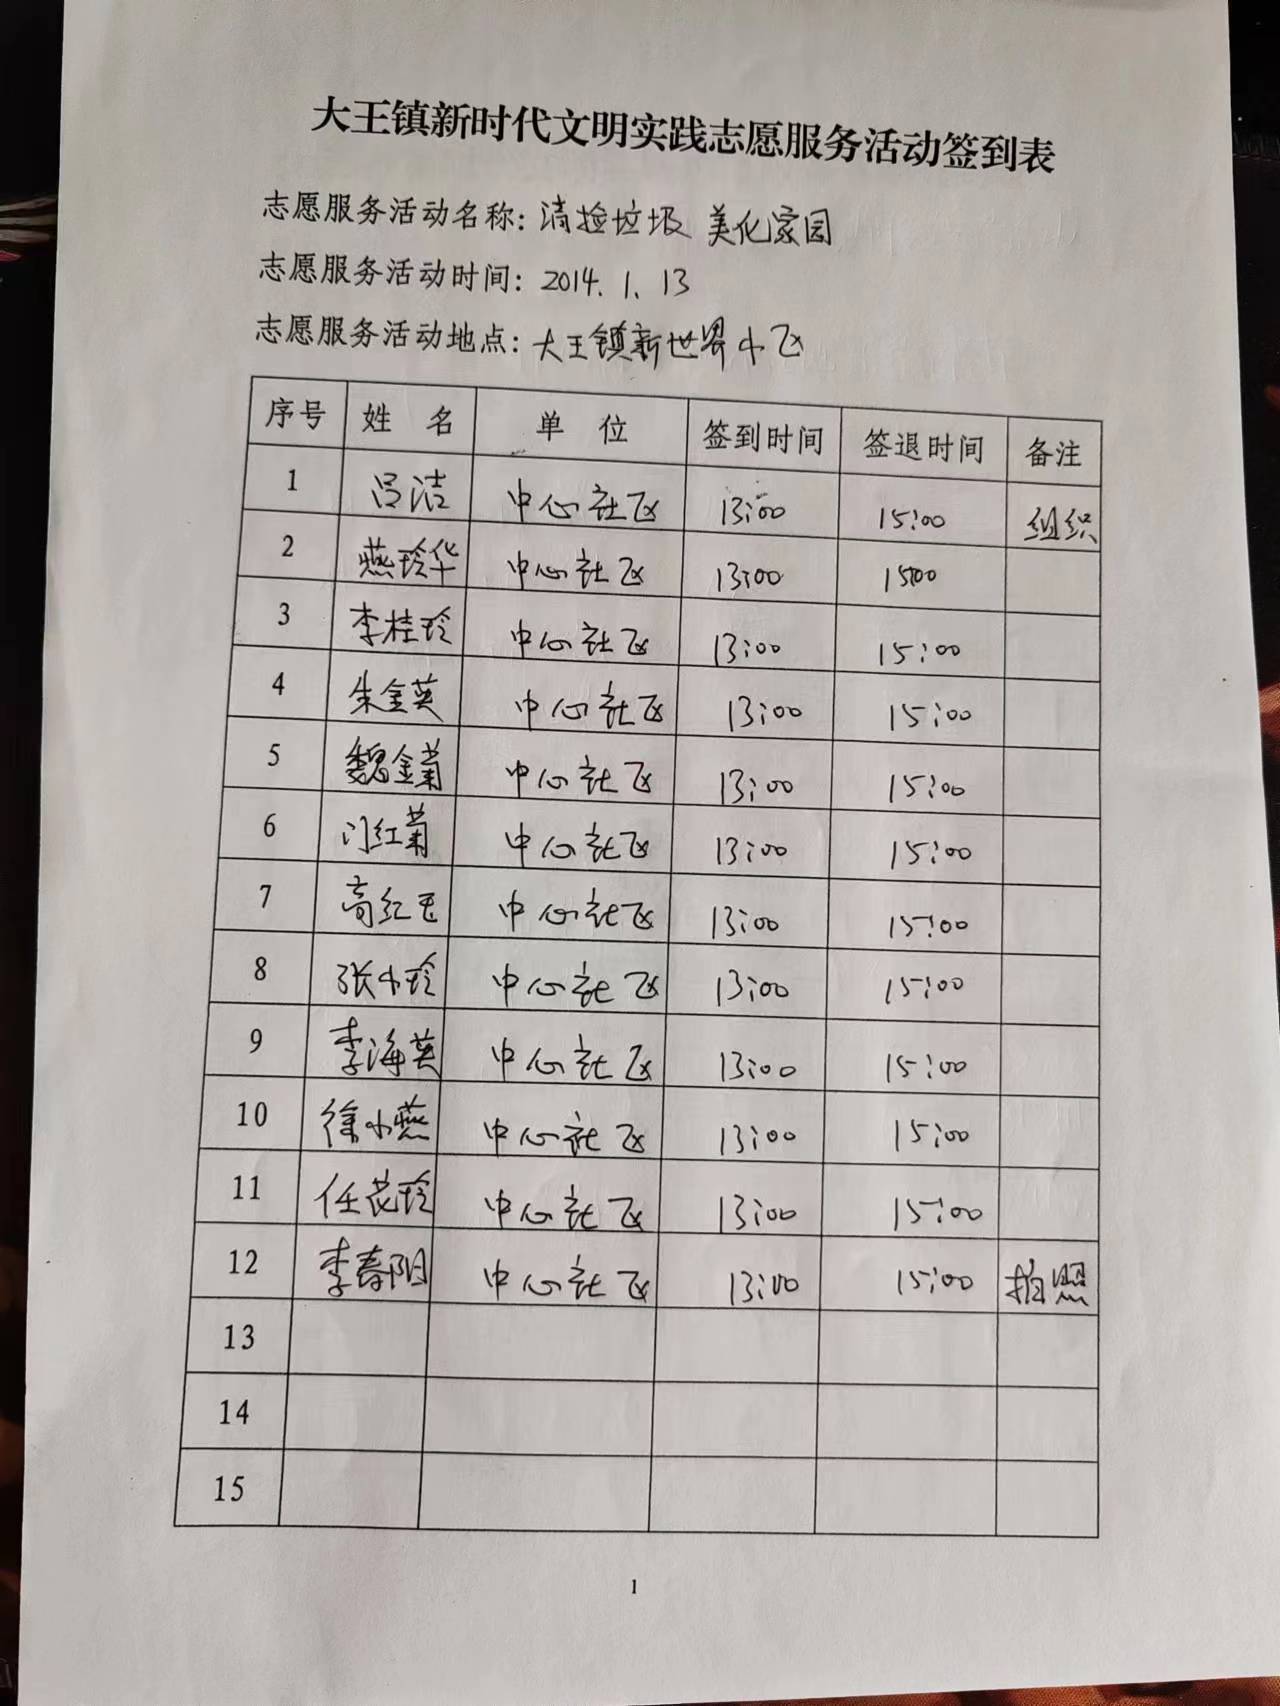 大王镇新时代文明实践志愿服务活动签到表
志愿服务活动名称: 清捡垃圾 美化家园
志愿服务活动时间: 2014.1.13
志愿服务活动地点: 大王镇新世界小区
序号 姓 名 单 位 签到时间 签退时间 备注
1 吕洁 中心社区 13:00 15:00 组织
2 燕玲华 中心社区 13:00 15:00
3 李桂玲 中心社区 13:00 15:00
4 朱金英 中心社区 13:00 15:00
5 魏金菊 中心社区 13:00 15:00
6 门红菊 中心社区 13:00 15:00
7 高红玉 中心社区 13:00 15:00
8 张小玲 中心社区 13:00 15:00
9 李海英 中心社区 13:00 15:00
10 徐小燕 中心社区 13:00 15:00
11 任花玲 中心社区 13:00 15:00
12 李春阳 中心社区 13:00 15:00 拍照
13
14
15
1